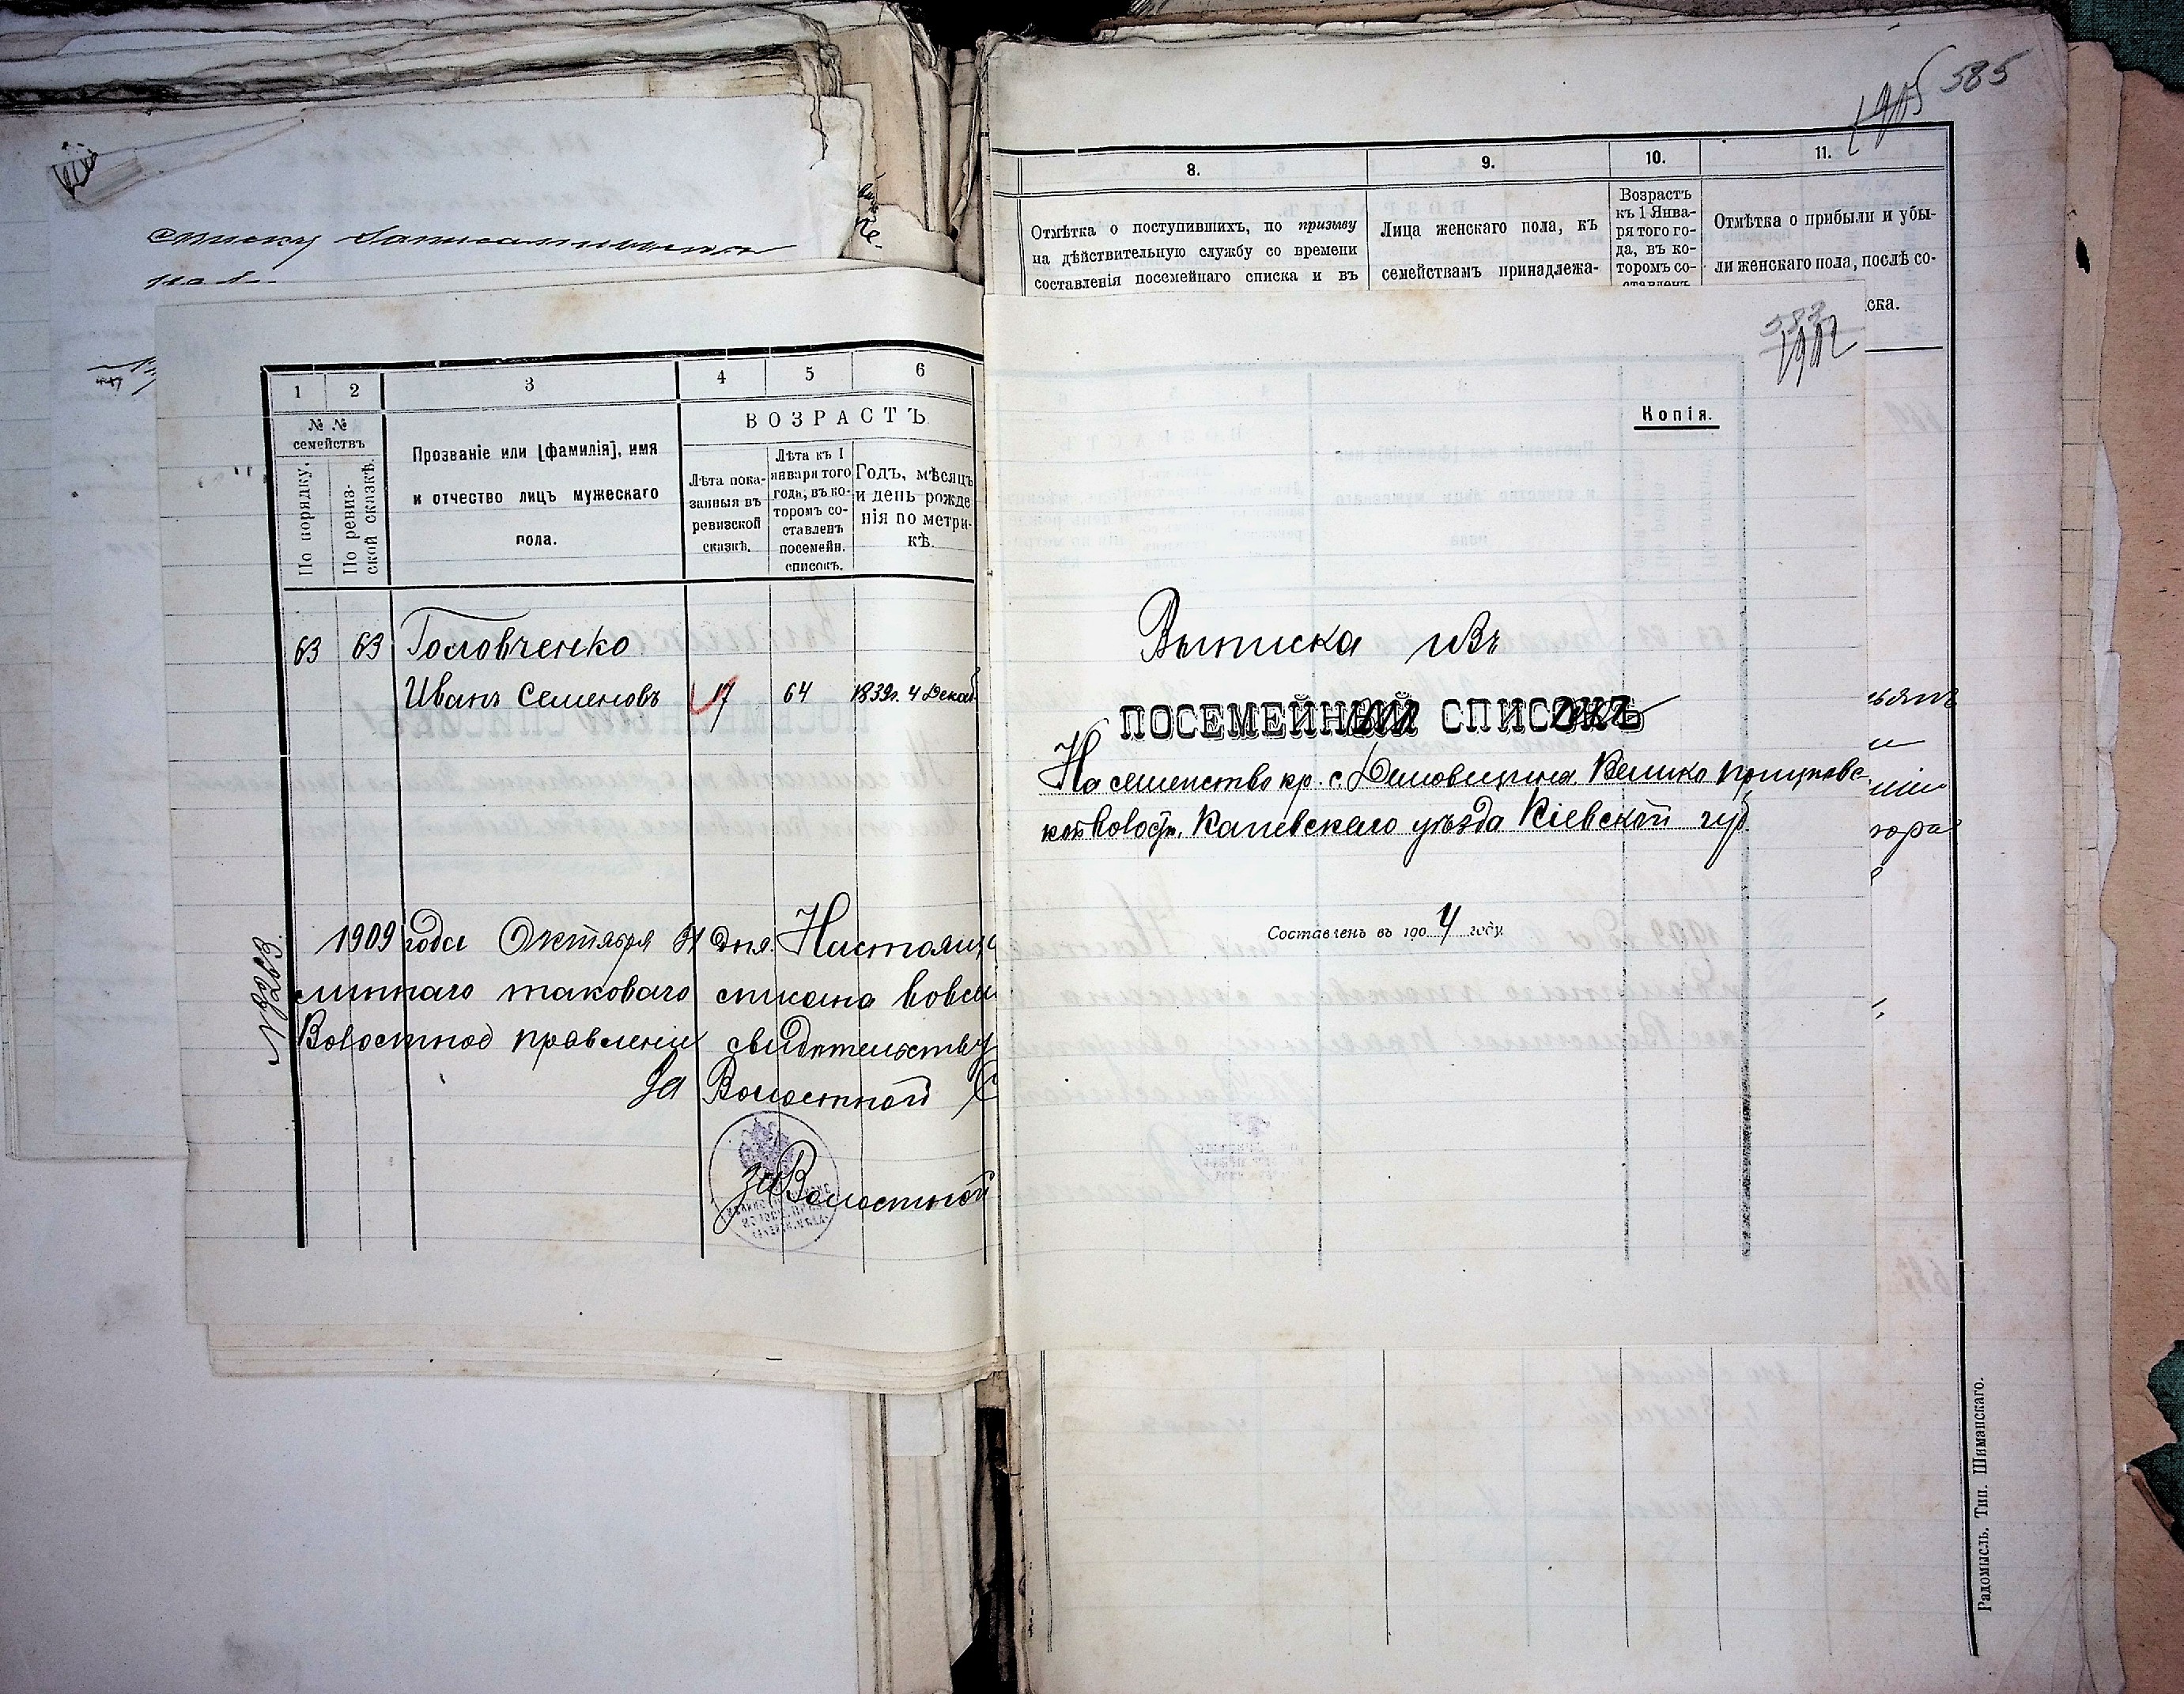 585
8.
9.
10.
11.
Отмѣтка о поступившихъ, по призыву
на дѣйствительную службу со времени
составленія посемейнаго списка и въ
Лица женскаго пола, къ
семействамъ принадлежа-
Возрастъ
къ 1 Янва-
ря того го-
да, въ ко-
торомъ со-
ставленъ
Отмѣтка о прибыли и убы-
ли женскаго пола, послѣ со-
ска.
списку
1
2
3
4
5
6
№ №
семействъ
По порядку.
По ревиз-
ской сказкѣ.
Прозваніе или [фамилія], имя
и отчество лицъ мужескаго
пола.
ВОЗРАСТЪ
Лѣта пока-
занныя въ
ревизской
сказкѣ.
Лѣта къ 1
января того
года, въ ко-
торомъ со-
ставленъ
посемейн.
списокъ.
Годъ, мѣсяцъ
и день рожде
нія по метри-
кѣ.
63 63 Головченко
Иванъ Семеновъ 17 64 1839г. 4 Декаб
1909 года Октября дня. Настоящ
линнаго таковаго списана
Волостное правленіе свидѣтельству
За Волостной С
За Волостной
583
Копія.
Выписка изъ
ПОСЕМЕЙНЫЙ СПИСОКЪ
На семейство кр. с. Демовщина Велико прицковс
кой волости. Каневскаго уѣзда Кіевской губ
Составленъ въ 1904 году
Радомысль. Тип. Шиманскаго.